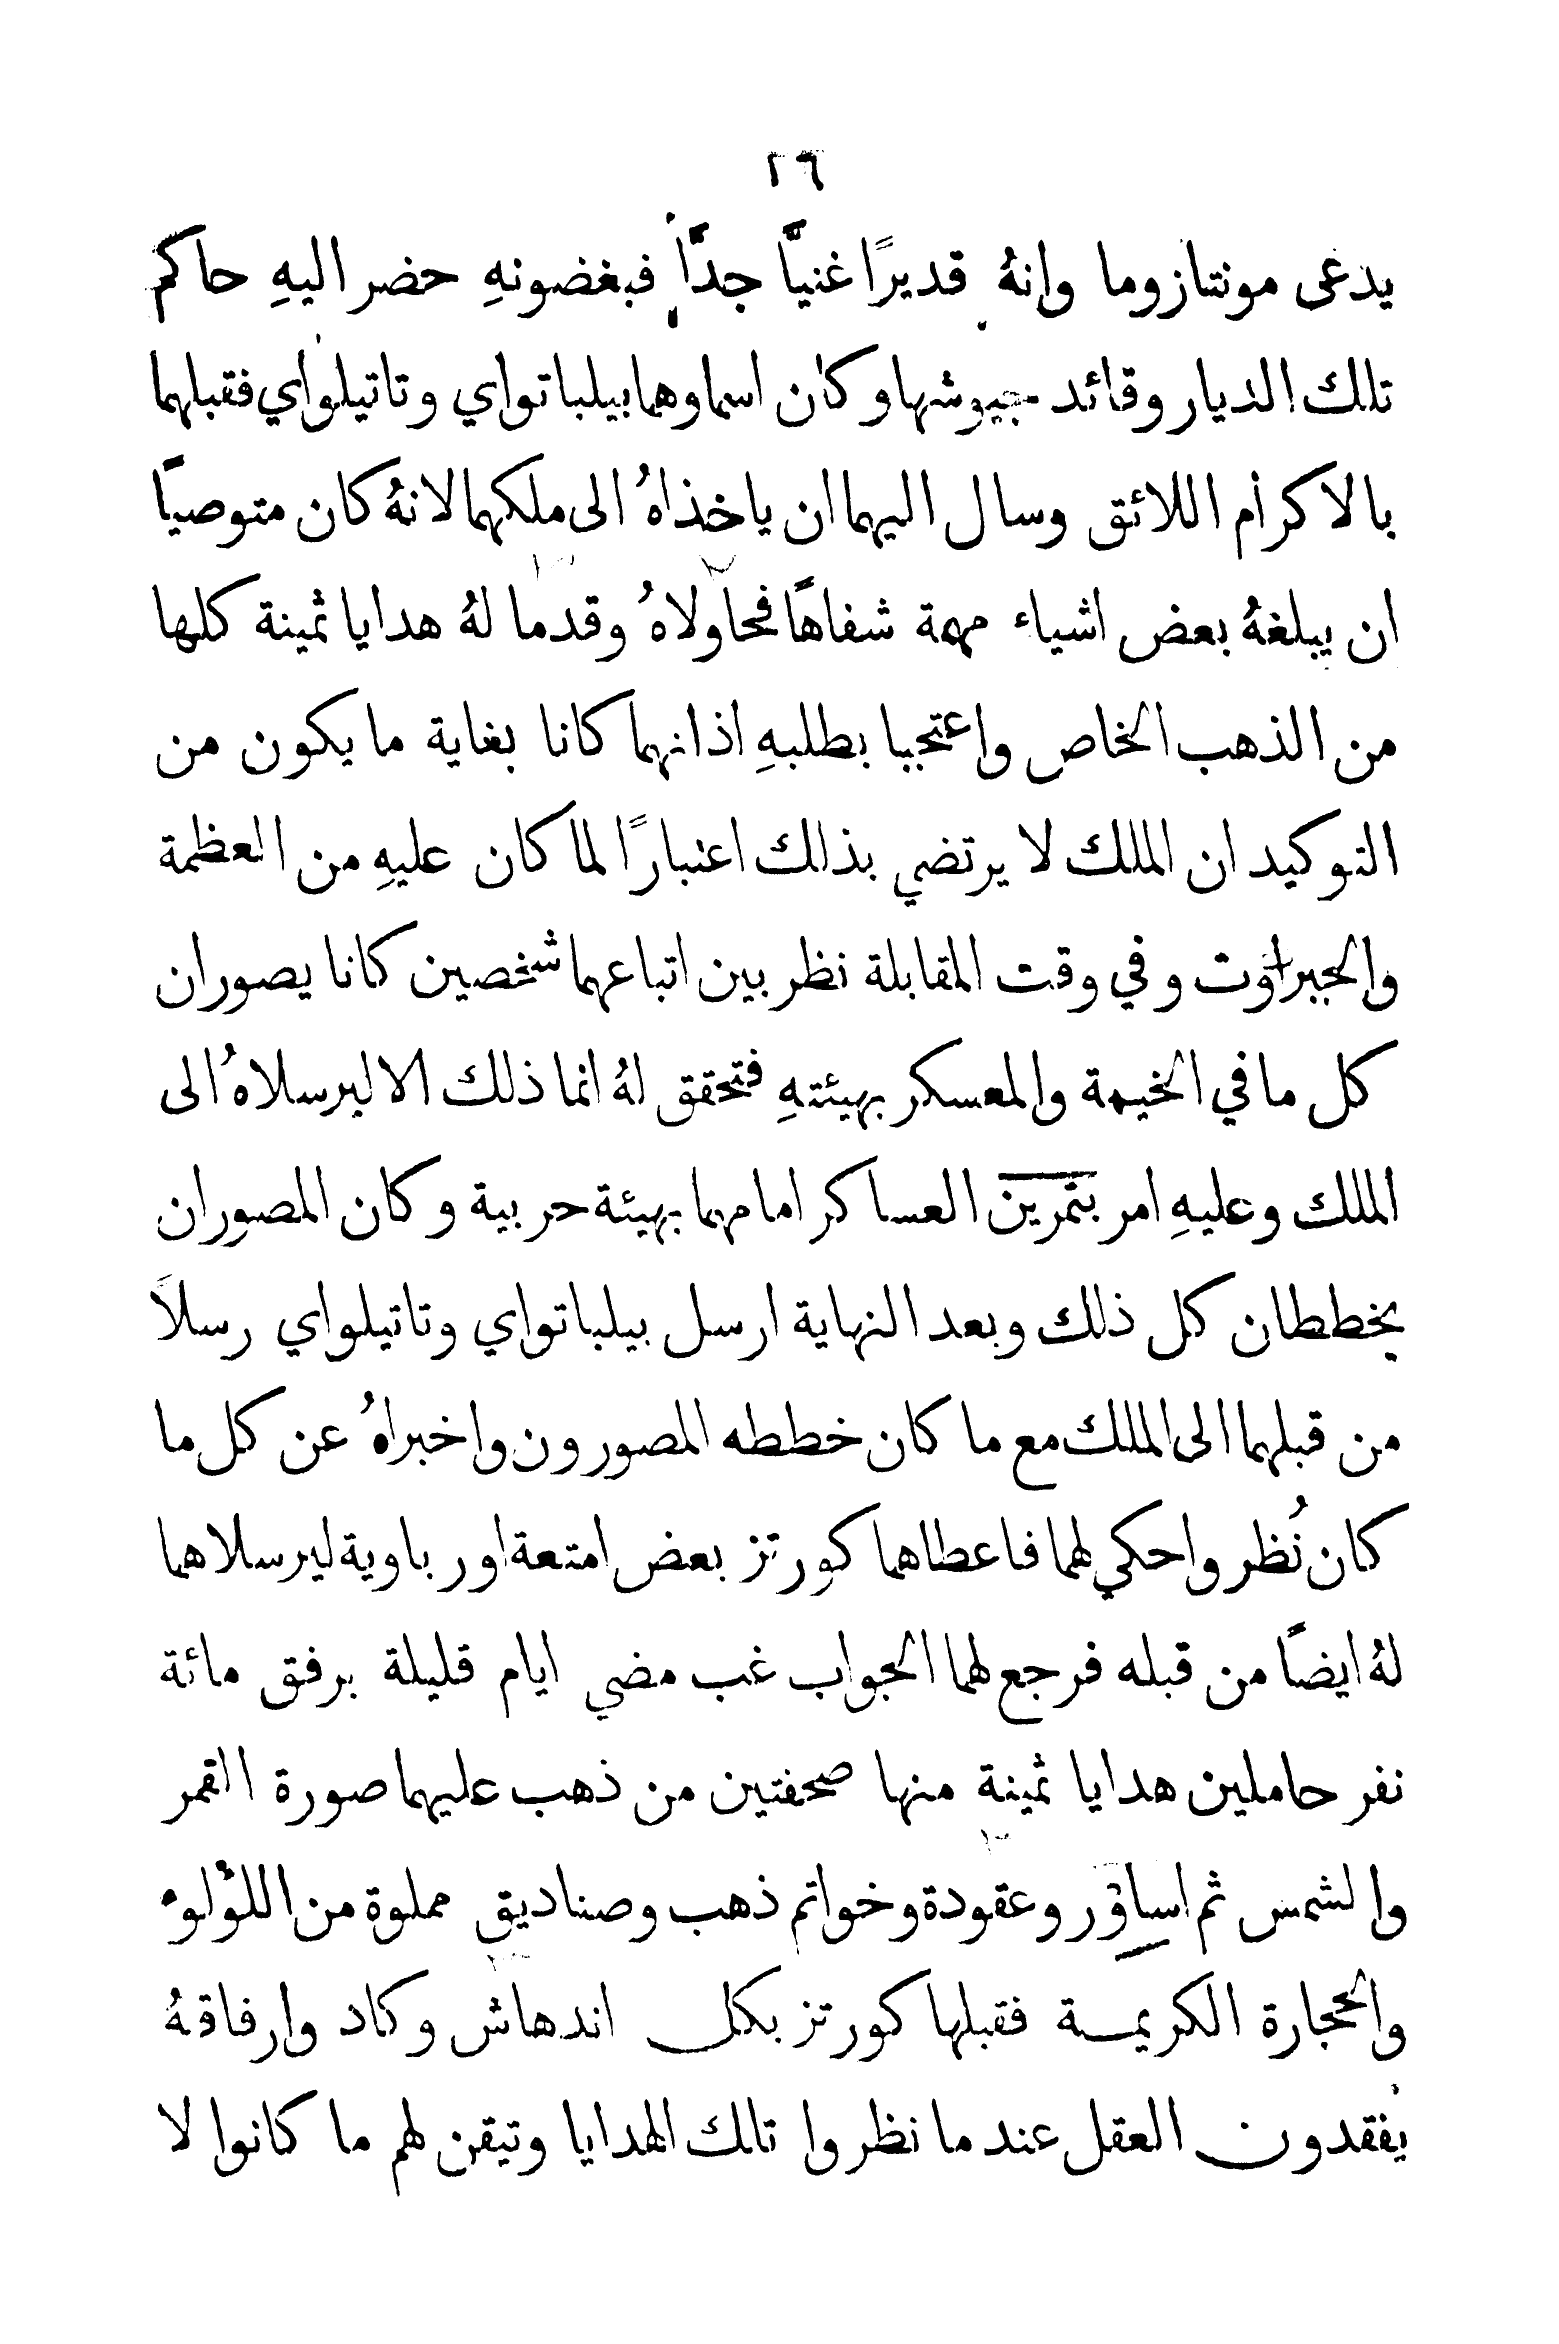 ٢٦
يدعى مونتازوما وانهُ قديرًا غنيًّا جدًّا فبغضونهِ حضر اليهِ حاكم
تلك الديار وقائد جيوشها وكان اسماوهما بيلباتواي وتاتيلواي فقبلهما
بالاكرام اللائق وسال اليهما ان ياخذاهُ الى ملكهما لانهُ كان متوصيًا
ان يبلغهُ بعض اشياء مهمة شفاهًا فحاولاهُ وقدما لهُ هدايا ثمينة كلها
من الذهب الخاص واعتجبا بطلبهِ اذ انهما كانا بغاية ما يكون من
التوكيد ان الملك لا يرتضي بذلك اعتبارًا لما كان عليهِ من العظمة
والجبراوت وفي وقت المقابلة نظر بين اتباعهما شخصين كانا يصوران
كل ما في الخيمة والمعسكر بهيئتهِ فتحقق لهُ انما ذلك الا ليرسلاهُ الى
الملك وعليهِ امر بتمرين العساكر امامهما بهيئة حربية وكان المصوران
يخططان كل ذلك وبعد النهاية ارسل بيلباتواي وتاتيلواي رسلاً
من قبلهما الى الملك مع ما كان خططه المصورون واخبراهُ عن كل ما
كان نُظر واحكي لهما فاعطاهما كورتز بعض امتعة اورباوية ليرسلاهما
لهُ ايضًا من قبله فرجع لهما الجواب غب مضي ايام قليلة برفق مائة
نفر حاملين هدايا ثمينة منها صحفتين من ذهب عليهما صورة القمر
والشمس ثم اساور وعقودة وخواتم ذهب وصناديق مملوة من اللؤلوء
والحجارة الكريمة فقبلها كورتز بكل اندهاش وكاد وارفاقهُ
يفقدون العقل عند ما نظروا تلك الهدايا وتيقن لهم ما كانوا لا